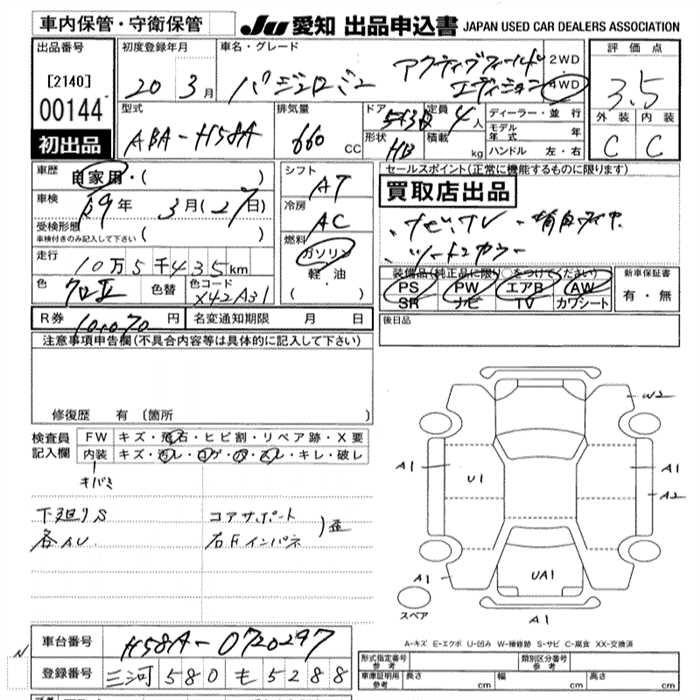 車内保管・守衛保管
JU 愛知 出品申込書 JAPAN USED CAR DEALERS ASSOCIATION
出品番号
[2140]
00144
初出品
初度登録年月
20 3月
車名・グレード
パジェロミニ
アクティブフィールド
エディション
2WD
4WD
評価点
3.5
外装 内装
C C
型式
ABA-H58A
排気量
660 CC
ドア
形状
HB
定員
4人
積載
kg
ディーラー・並行
モデル年式 年
ハンドル 左・右
車歴
自家用・( )
車検
29年 3月(27日)
受検形態
車検付きのみ記入して下さい ( )
走行
10万5千435km
色
色替
色コード
X42A31
シフト
AT
冷房
AC
燃料
ガソリン
軽・油
( ・ )
R券
10,070円
名変通知期限 月 日
セールスポイント(正常に機能するものに限ります)
買取店出品
・ナビ、TV
・ツートンカラー
装備品(純正品に限り○をつけてください)
PS PW エアB AW
SR ナビ TV カワシート
新車保証書
有・無
後日品
注意事項申告欄(不具合内容等は具体的に記入して下さい)
修復歴 有 (箇所 )
検査員
記入欄
FW キズ・飛石・ヒビ割・リペア跡・X要
内装 キズ・汚レ・コゲ・穴・スレ・キレ・破レ
キバミ
下廻りS
各AU
コアサポート
右Fインパネ
)歪
W2
A1
U1
A1
A2
A1
UA1
A1
A1
スペア
A-キズ E-エクボ U-凹み W-補修跡 S-サビ C-腐食 XX-交換済
N
車台番号
H58A-0720297
登録番号
三河580も5288
形式指定番号
参考
類別区分番号
参考
車庫証明用
参考
長さ cm
幅 cm
高さ cm